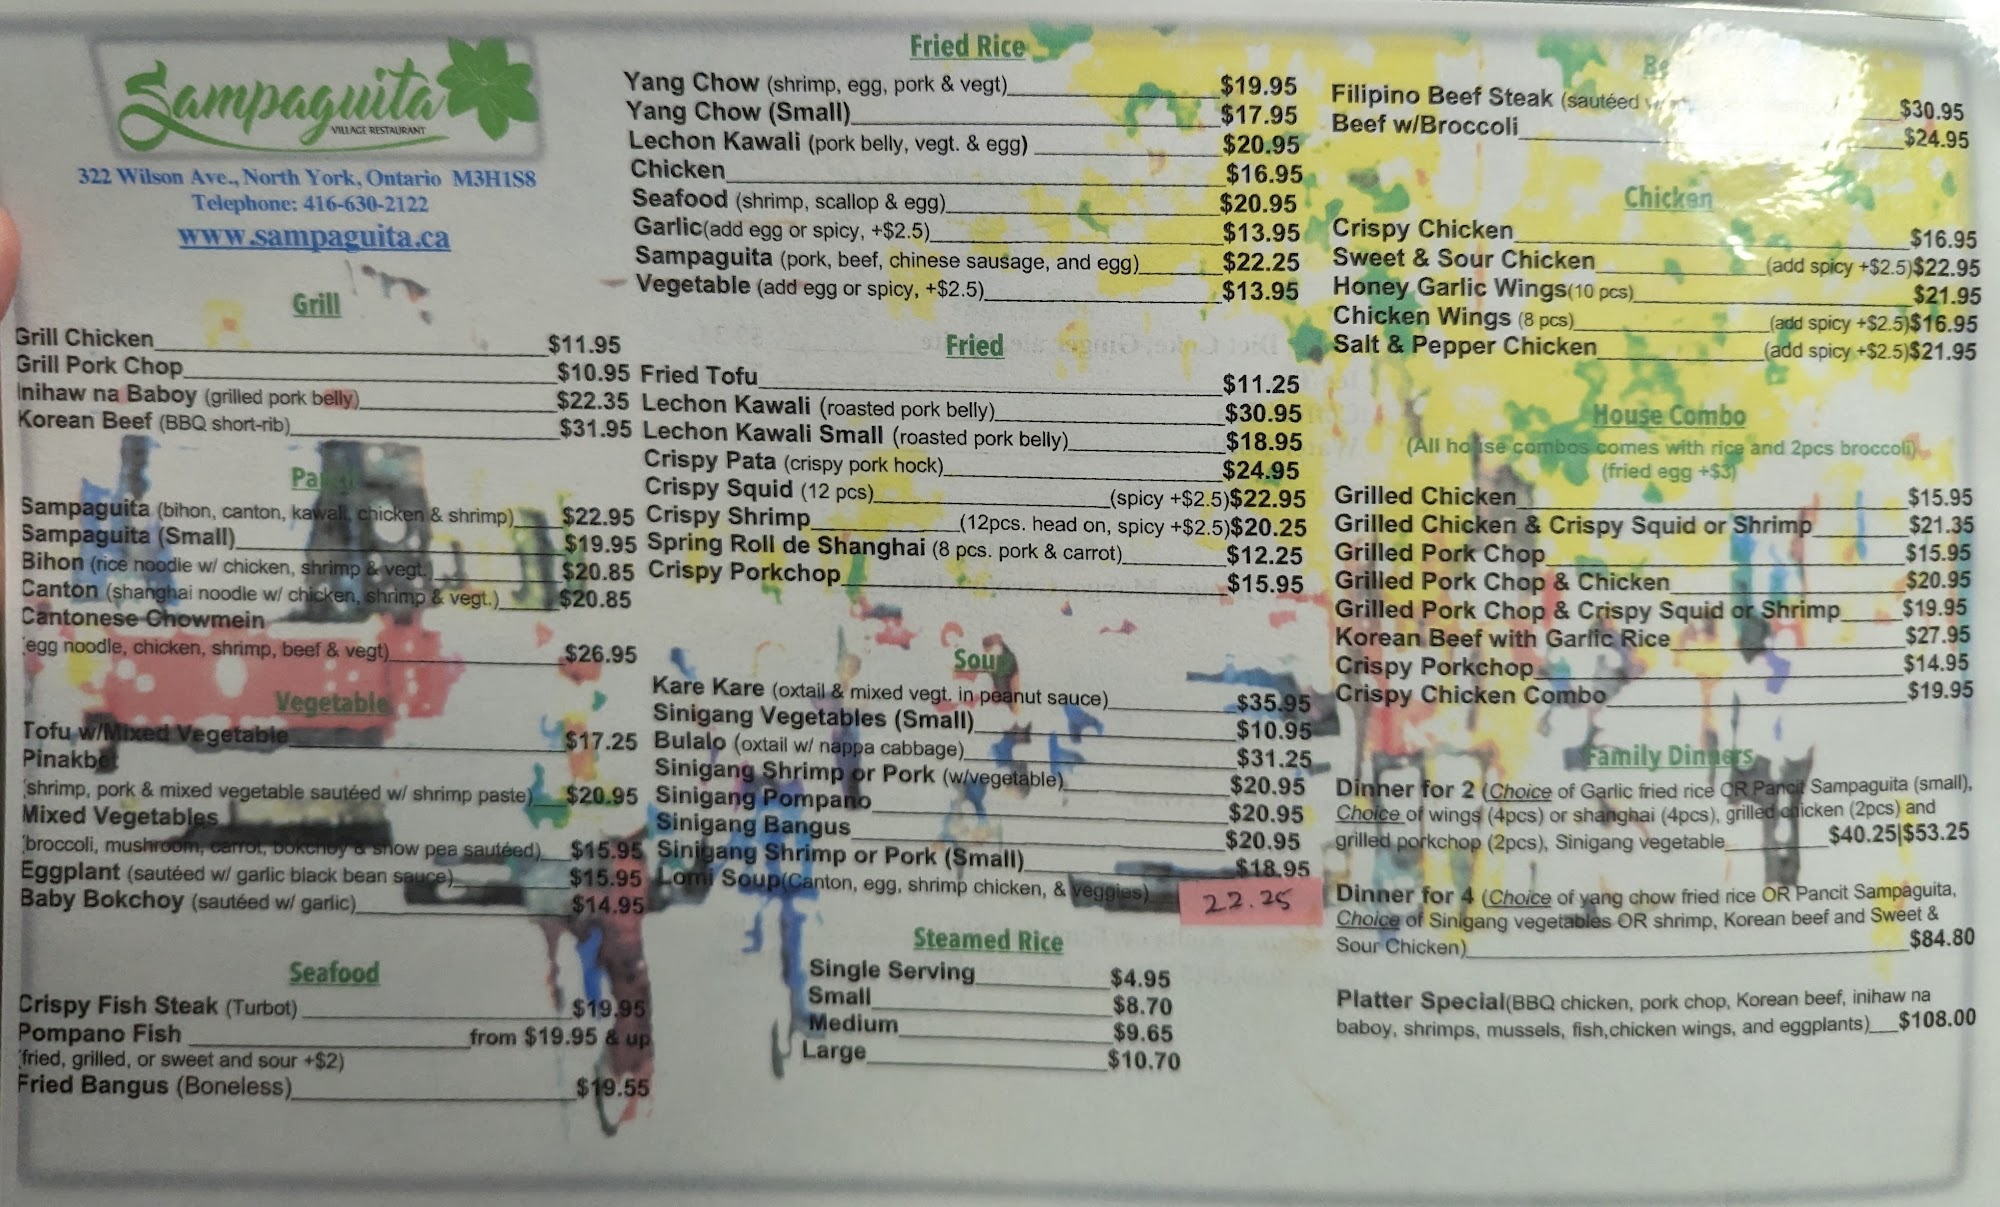 Sampaguita
VILLAGE RESTAURANT
322 Wilson Ave., North York, Ontario M3H1S8
Telephone: 416-630-2122
www.sampaguita.ca
Grill
Grill Chicken $11.95
Grill Pork Chop $10.95
Inihaw na Baboy (grilled pork belly) $22.35
Korean Beef (BBQ short-rib) $31.95
Sampaguita (bihon, canton, kawali, chicken & shrimp) $22.95
Sampaguita (Small) $19.95
Bihon (rice noodle w/ chicken, shrimp & vegt. $20.85
Canton (shanghai noodle w/ chicken, shrimp & vegt.) $20.85
Cantonese Chowmein
(egg noodle, chicken, shrimp, beef & vegt) $26.95
Vegetable
Tofu w/Mixed Vegetable $17.25
Pinakbet
(shrimp, pork & mixed vegetable sautéed w/ shrimp paste) $20.95
Mixed Vegetables
(broccoli, mushroom, carrot, bokchoy & snow pea sautéed) $15.95
Eggplant (sautéed w/ garlic black bean sauce) $15.95
Baby Bokchoy (sautéed w/ garlic) $14.95
Seafood
Crispy Fish Steak (Turbot) $19.95
Pompano Fish from $19.95 & up
(fried, grilled, or sweet and sour +$2)
Fried Bangus (Boneless) $19.55
Fried Rice
Yang Chow (shrimp, egg, pork & vegt) $19.95
Yang Chow (Small) $17.95
Lechon Kawali (pork belly, vegt. & egg) $20.95
Chicken $16.95
Seafood (shrimp, scallop & egg) $20.95
Garlic(add egg or spicy, +$2.5) $13.95
Sampaguita (pork, beef, chinese sausage, and egg) $22.25
Vegetable (add egg or spicy, +$2.5) $13.95
Fried
Fried Tofu $11.25
Lechon Kawali (roasted pork belly) $30.95
Lechon Kawali Small (roasted pork belly) $18.95
Crispy Pata (crispy pork hock) $24.95
Crispy Squid (12 pcs) (spicy +$2.5)$22.95
Crispy Shrimp (12pcs. head on, spicy +$2.5)$20.25
Spring Roll de Shanghai (8 pcs. pork & carrot) $12.25
Crispy Porkchop $15.95
Soup
Kare Kare (oxtail & mixed vegt. in peanut sauce) $35.95
Sinigang Vegetables (Small) $10.95
Bulalo (oxtail w/ nappa cabbage) $31.25
Sinigang Shrimp or Pork (w/vegetable) $20.95
Sinigang Pompano $20.95
Sinigang Bangus $20.95
Sinigang Shrimp or Pork (Small) $18.95
Lomi Soup(Canton, egg, shrimp chicken, & veggies) 22.25
Steamed Rice
Single Serving $4.95
Small $8.70
Medium $9.65
Large $10.70
Filipino Beef Steak (sautéed $30.95
Beef w/Broccoli $24.95
Chicken
Crispy Chicken $16.95
Sweet & Sour Chicken (add spicy +$2.5)$22.95
Honey Garlic Wings(10 pcs) $21.95
Chicken Wings (8 pcs) (add spicy +$2.5)$16.95
Salt & Pepper Chicken (add spicy +$2.5)$21.95
House Combo
(All house combos comes with rice and 2pcs broccoli)
(fried egg +$3)
Grilled Chicken $15.95
Grilled Chicken & Crispy Squid or Shrimp $21.35
Grilled Pork Chop $15.95
Grilled Pork Chop & Chicken $20.95
Grilled Pork Chop & Crispy Squid or Shrimp $19.95
Korean Beef with Garlic Rice $27.95
Crispy Porkchop $14.95
Crispy Chicken Combo $19.95
Family Dinners
Dinner for 2 (Choice of Garlic fried rice OR Pancit Sampaguita (small),
Choice of wings (4pcs) or shanghai (4pcs), grilled chicken (2pcs) and
grilled porkchop (2pcs), Sinigang vegetable $40.25|$53.25
Dinner for 4 (Choice of yang chow fried rice OR Pancit Sampaguita,
Choice of Sinigang vegetables OR shrimp, Korean beef and Sweet &
Sour Chicken) $84.80
Platter Special(BBQ chicken, pork chop, Korean beef, inihaw na
baboy, shrimps, mussels, fish,chicken wings, and eggplants) $108.00